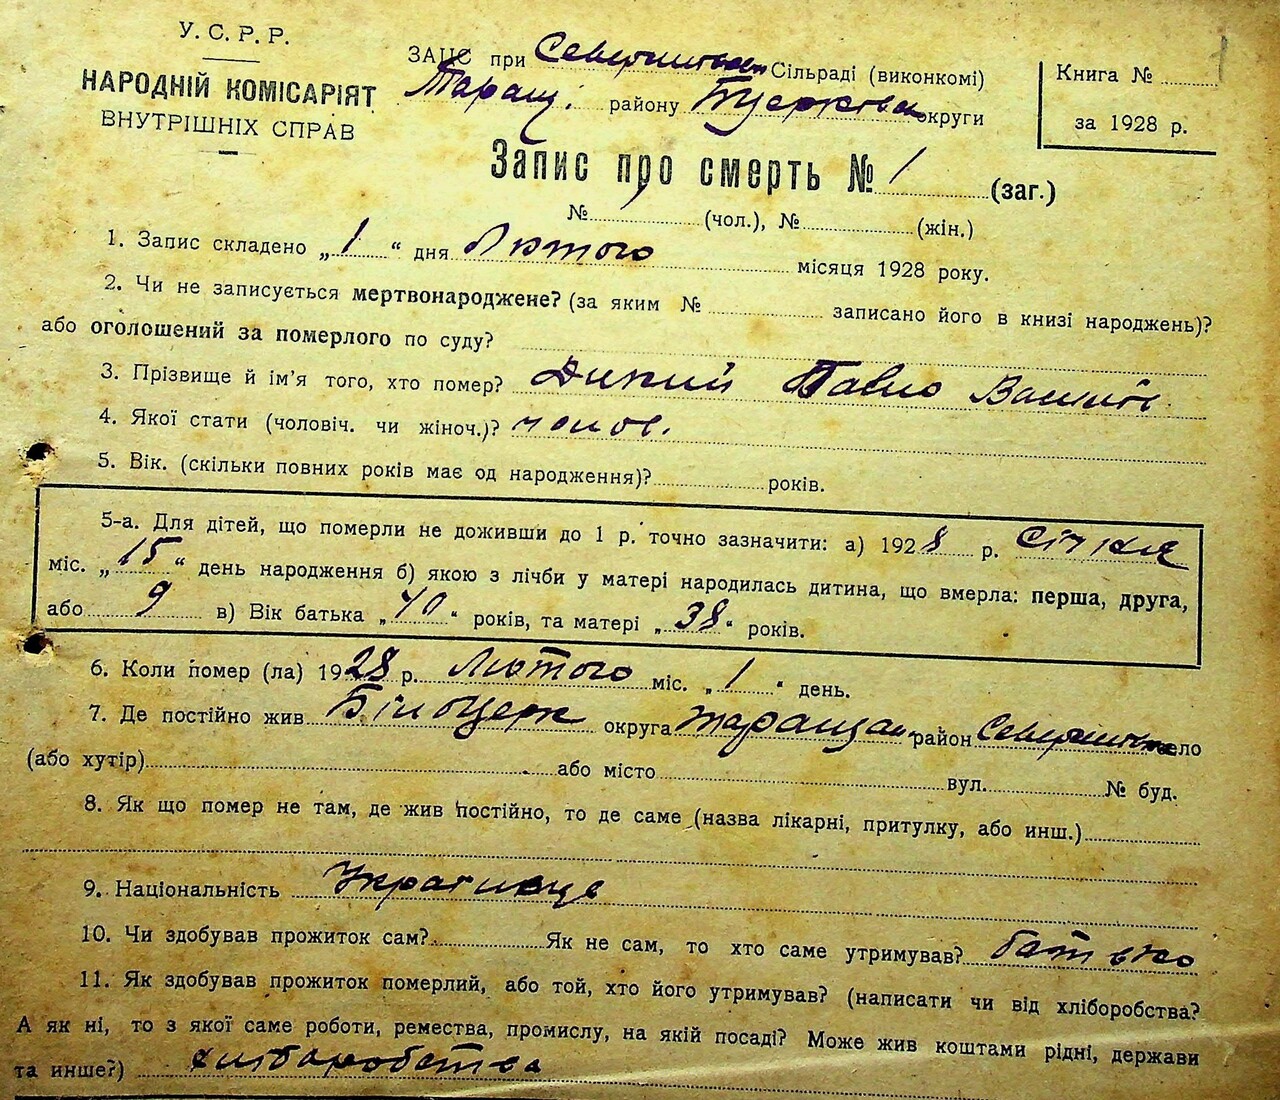 У. С. Р. Р.
НАРОДНІЙ КОМІСАРІЯТ
ВНУТРІШНІХ СПРАВ
ЗАГС при Сільраді (виконкомі)
Таращ. району Бцеркваokруги
Книга №
за 1928 р.
Запис про смерть № 1 (заг.)
№ (чол.), № (жін.)
1. Запис складено „1“ дня Лютого місяця 1928 року.
2. Чи не записується мертвонароджене? (за яким № записано його в книзі народжень)?
або оголошений за померлого по суду?
3. Прізвище й ім'я того, хто помер? Дикий Павло Василів
4. Якої стати (чоловіч. чи жіноч.)? чолов.
5. Вік. (скільки повних років має од народження)? років.
5-а. Для дітей, що померли не доживши до 1 р. точно зазначити: а) 1928 р. Січня
міс. „15“ день народження б) якою з лічби у матері народилась дитина, що вмерла: перша, друга,
або 9 в) Вік батька „40“ років, та матері „38“ років.
6. Коли помер (ла) 1928 р. Лютого міс. „1“ день.
7. Де постійно жив Білоцерк округа Таращан. район село
(або хутір) або місто вул. № буд.
8. Як що помер не там, де жив постійно, то де саме (назва лікарні, притулку, або инш.)
9. Національність Українець
10. Чи здобував прожиток сам? Як не сам, то хто саме утримував? батько
11. Як здобував прожиток померлий, або той, хто його утримував? (написати чи від хліборобства?
А як ні, то з якої саме роботи, ремества, промислу, на якій посаді? Може жив коштами рідні, держави
та инше?) хліборобства